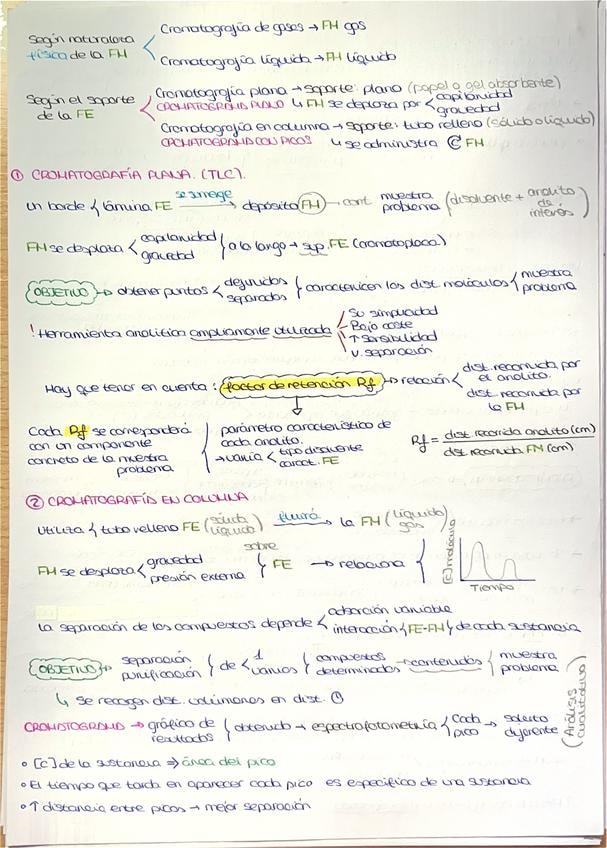 Según naturaleza física de la FM < Cromatografía de gases → FM gas
Cromatografía líquida → FM líquido
Según el soporte de la FE < Cromatografía plana → soporte: plano (papel o gel absorbente)
CROMATOGRAMA PLANO ↳ FM se desplaza por < capilaridad gravedad
Cromatografía en columna → soporte: tubo relleno (sólido o líquido)
CROMATOGRAMA CON PICOS ↳ se administra FM
① CROMATOGRAFÍA PLANA. (TLC).
Un borde { lámina FE se sumerge → depósito FM → cont muestra problema (disolvente + analito de interés)
FM se desplaza < capilaridad gravedad } a lo largo → sup. FE (cromatoplaca)
OBJETIVO → obtener puntos < definidos separados } caractericen los dist. moléculas { muestra problema
! Herramienta analítica ampliamente utilizada
Su simplicidad
Bajo coste
↑ sensibilidad
V. separación
Hay que tener en cuenta: factor de retención Rf → relación < dist. recorrida por el analito.
dist. recorrida por la FM
Cada Rf se corresponderá con un componente concreto de la muestra problema
parámetro característico de cada analito.
→ varía < tipo disolvente caract. FE
Rf = dist. recorrida analito (cm) / dist. recorrida FM (cm)
② CROMATOGRAFÍA EN COLUMNA
Utiliza { tubo relleno FE (sólida líquida) fluirá → la FM (líquido gas)
FM se desplaza < gravedad presión externa sobre { FE → relaciona
[c] molécula
Tiempo
La separación de los compuestos depende < adsorción variable interacción {FE-FM} de cada sustancia
OBJETIVO → separación purificación { de < 1 varios { compuestos determinados → contenidos { muestra problema
↳ Se recogen dist. volúmenes en dist.
CROMATOGRAMA → gráfico de resultados { obtenido → espectrofotometría < cada pico → soluto diferente
(Análisis cualitativo)
• [c] de la sustancia ⇒ área del pico
• El tiempo que tarda en aparecer cada pico es específico de una sustancia
• ↑ distancia entre picos → mejor separación